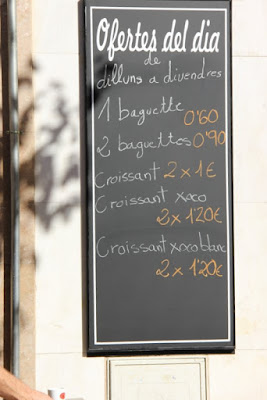 Ofertes del dia
de
dilluns a divendres
1 baguette 0'60
2 baguettes 0'90
Croissant 2 x 1€
Croissant xoco
2 x 1'20€
Croissant xoco blanc
2 x 1'20€